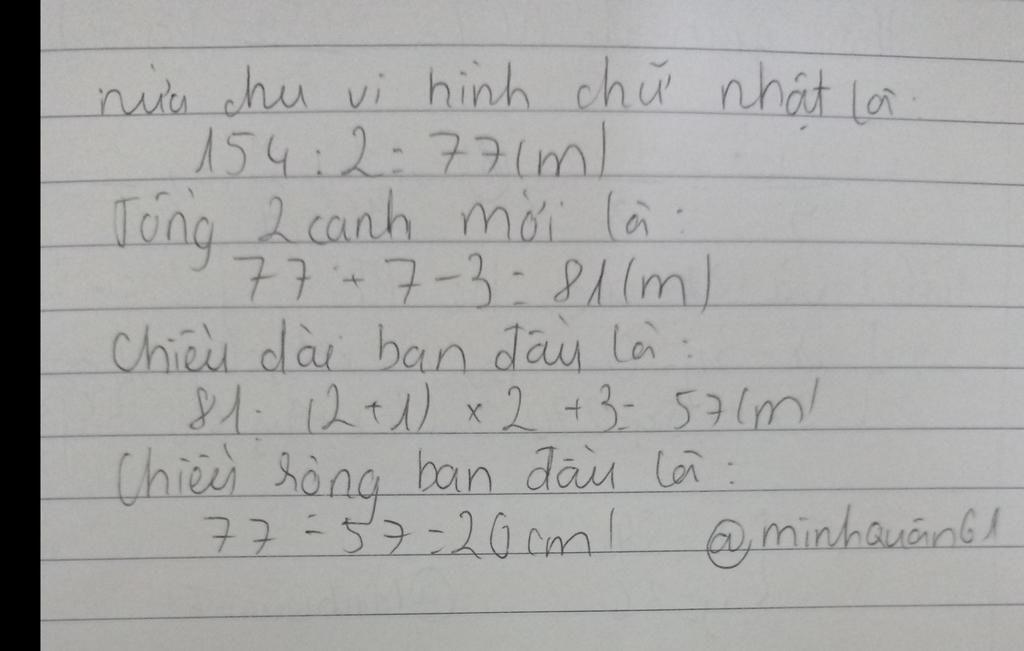 nửa chu vi hình chữ nhật là:
154 : 2 = 77 (m)
Tổng 2 canh mới là:
77 + 7 - 3 = 81 (m)
Chiều dài ban đầu là:
81 : (2+1) x 2 + 3 = 57 (m)
Chiều rộng ban đầu là:
77 - 57 = 20 (m) @minhquân61